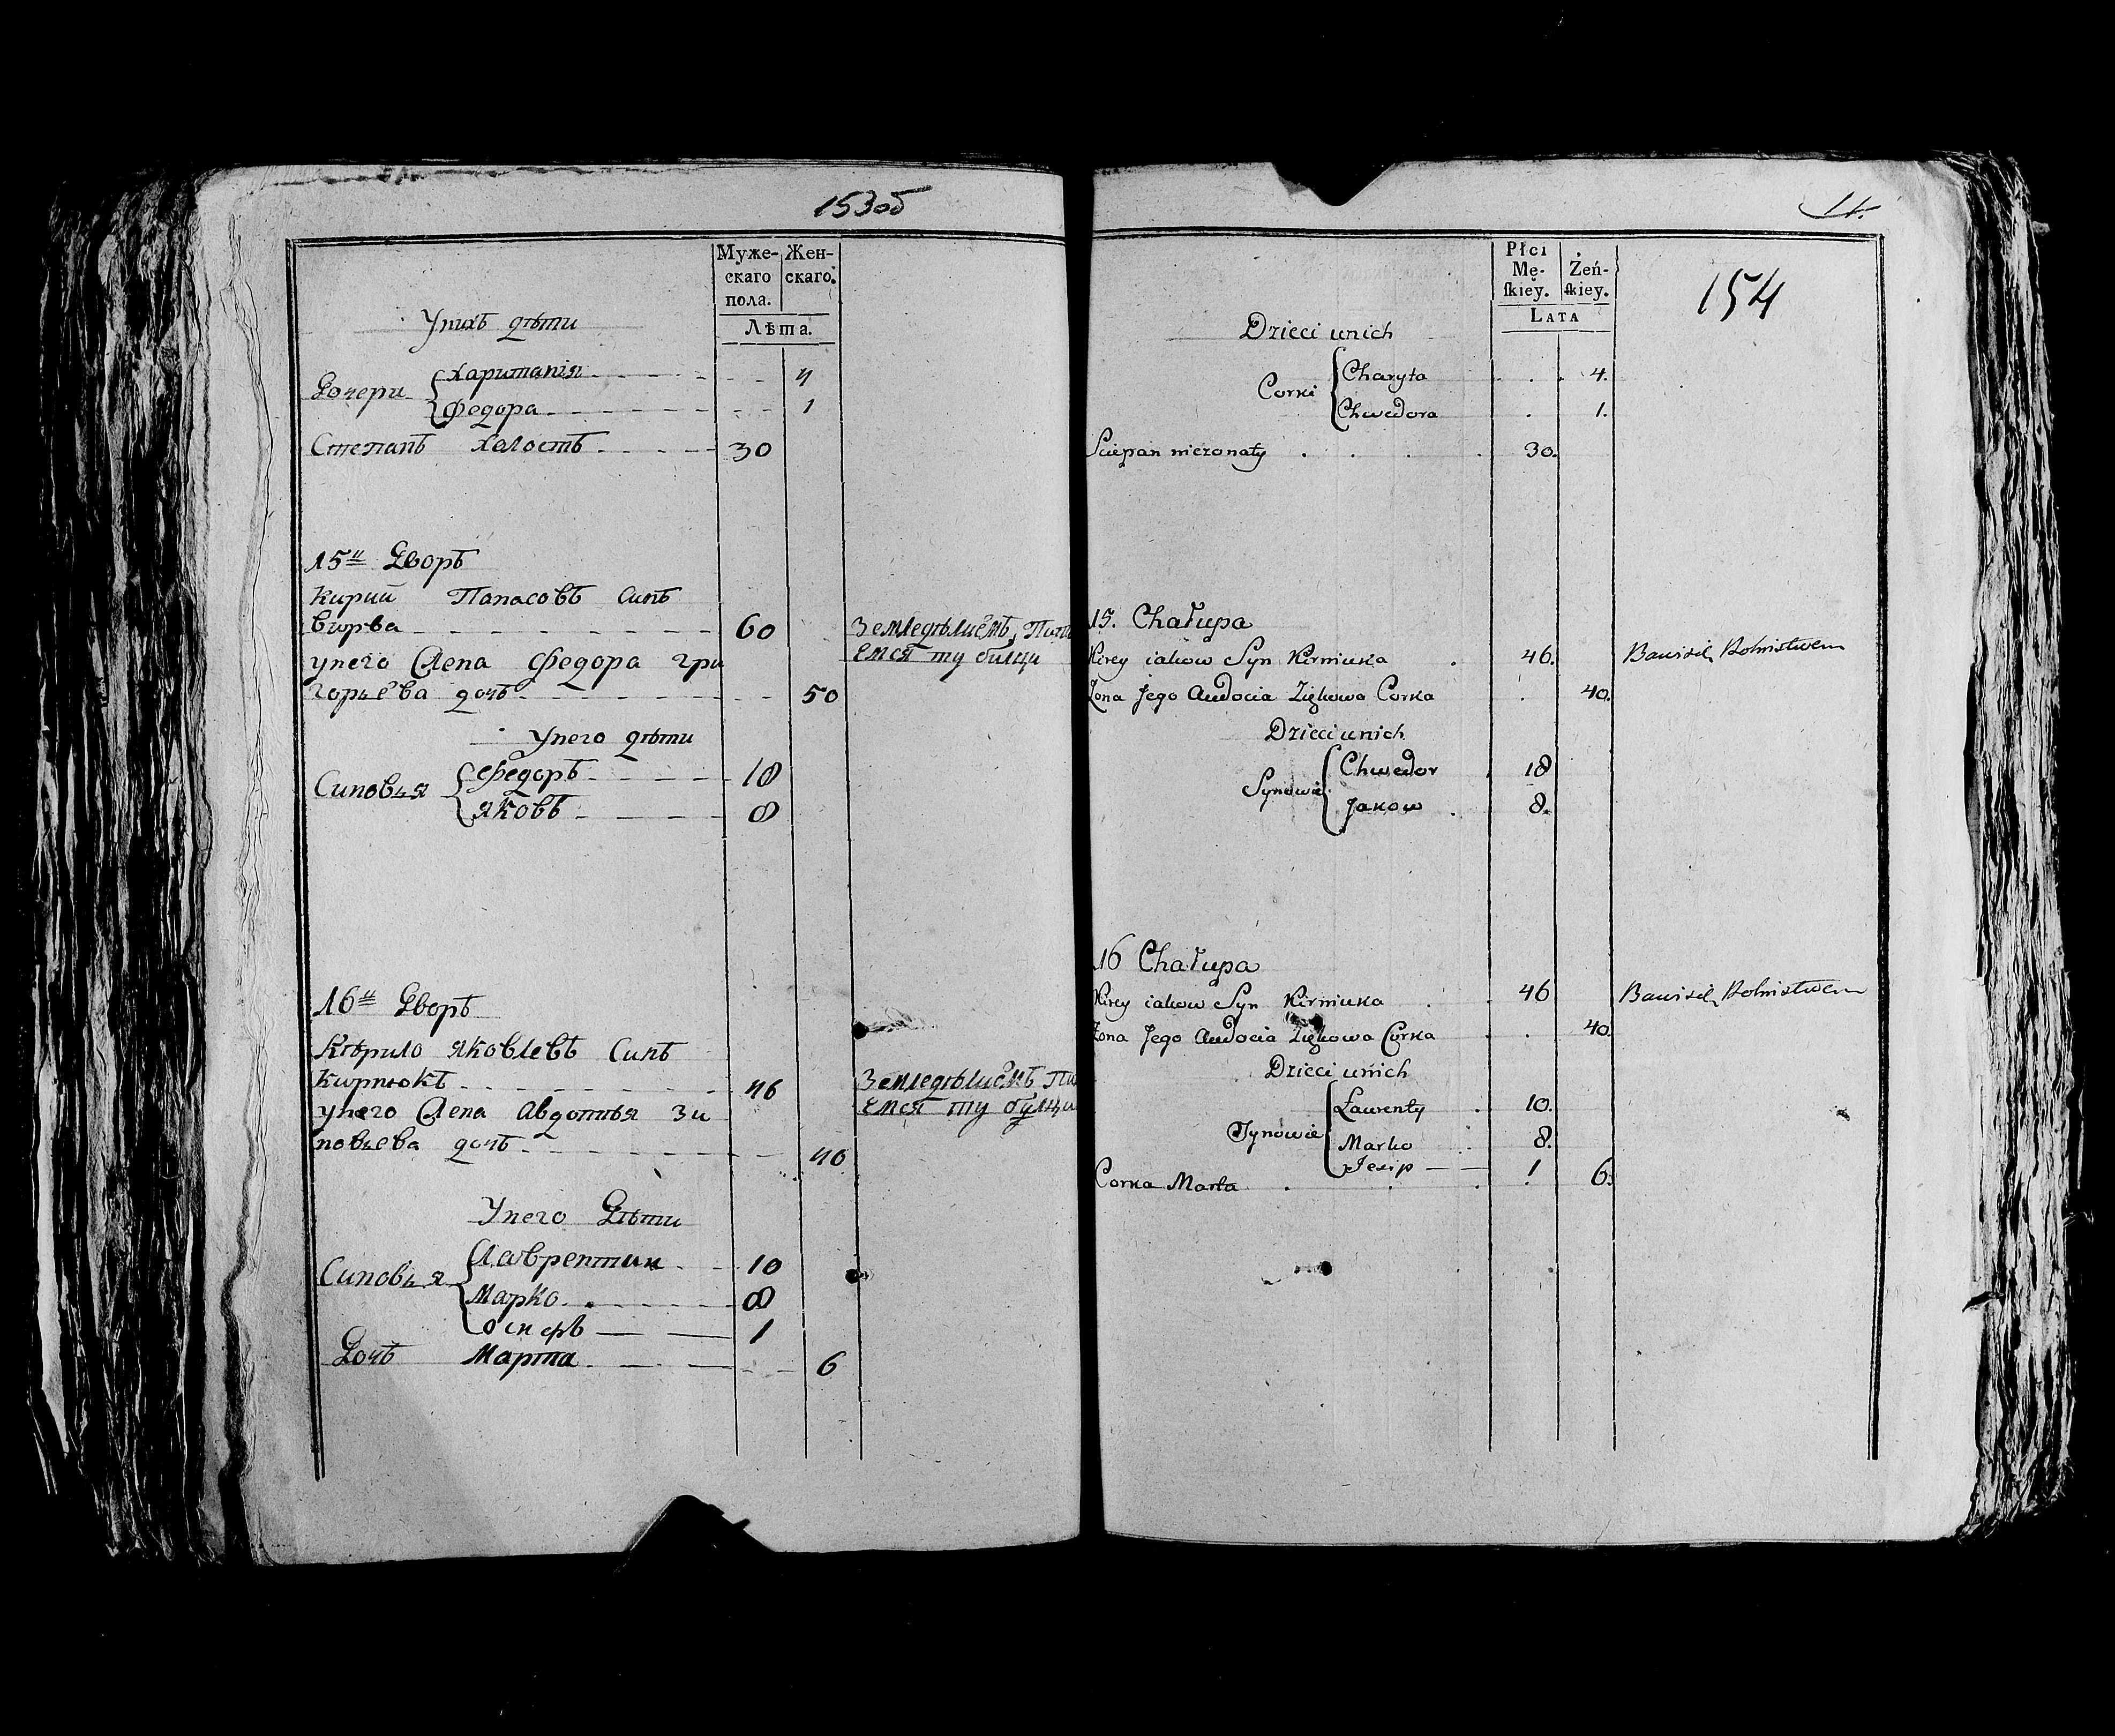 153об
Муже-
скаго
пола.
Жен-
скаго.
Лѣта.
Унихъ дѣти
Дочери
Хаританія 4
Федора 1
Степанъ холостъ 30
15й Дворъ
Кирий Панасовъ Синъ
Вирва 60
Земледѣлиемъ
унего Жена Федора Гри
горьева дочъ 50
Унего дѣти
Синовья
Федоръ 18
Яковъ 8
16й Дворъ
Кѣрило Яковлевъ Синъ
Кирнюкъ 46
Земледѣлиемъ
унего Жена Авдотья Зи
новьева дочъ 40
Унего Дѣти
Синовья
Лаврентии 10
Марко 8
Осифъ 1
Дочъ Марта 6
11.
154
Płci
Mę-
skiey.
Żeń-
skiey.
LATA
Dzieci unich
Corki
Charyta 4.
Chwedora 1.
Sciepan niezonaty 30.
15. Chałupa
Kirey iakow Syn Kirniuka 46. Bawi się Rolnistwem
Zona Jego Audocia Ziękowa Corka 40.
Dzieci unich
Synowie
Chwedor 18
Jakow 8.
16 Chałupa
Kirey iakow Syn Kirniuka 46 Bawi się Rolnistwem
Zona Jego Audocia Ziękowa Corka 40.
Dzieci unich
Synowie
Ławrenty 10.
Marko 8.
Jesip 1
Corka Marta 6.